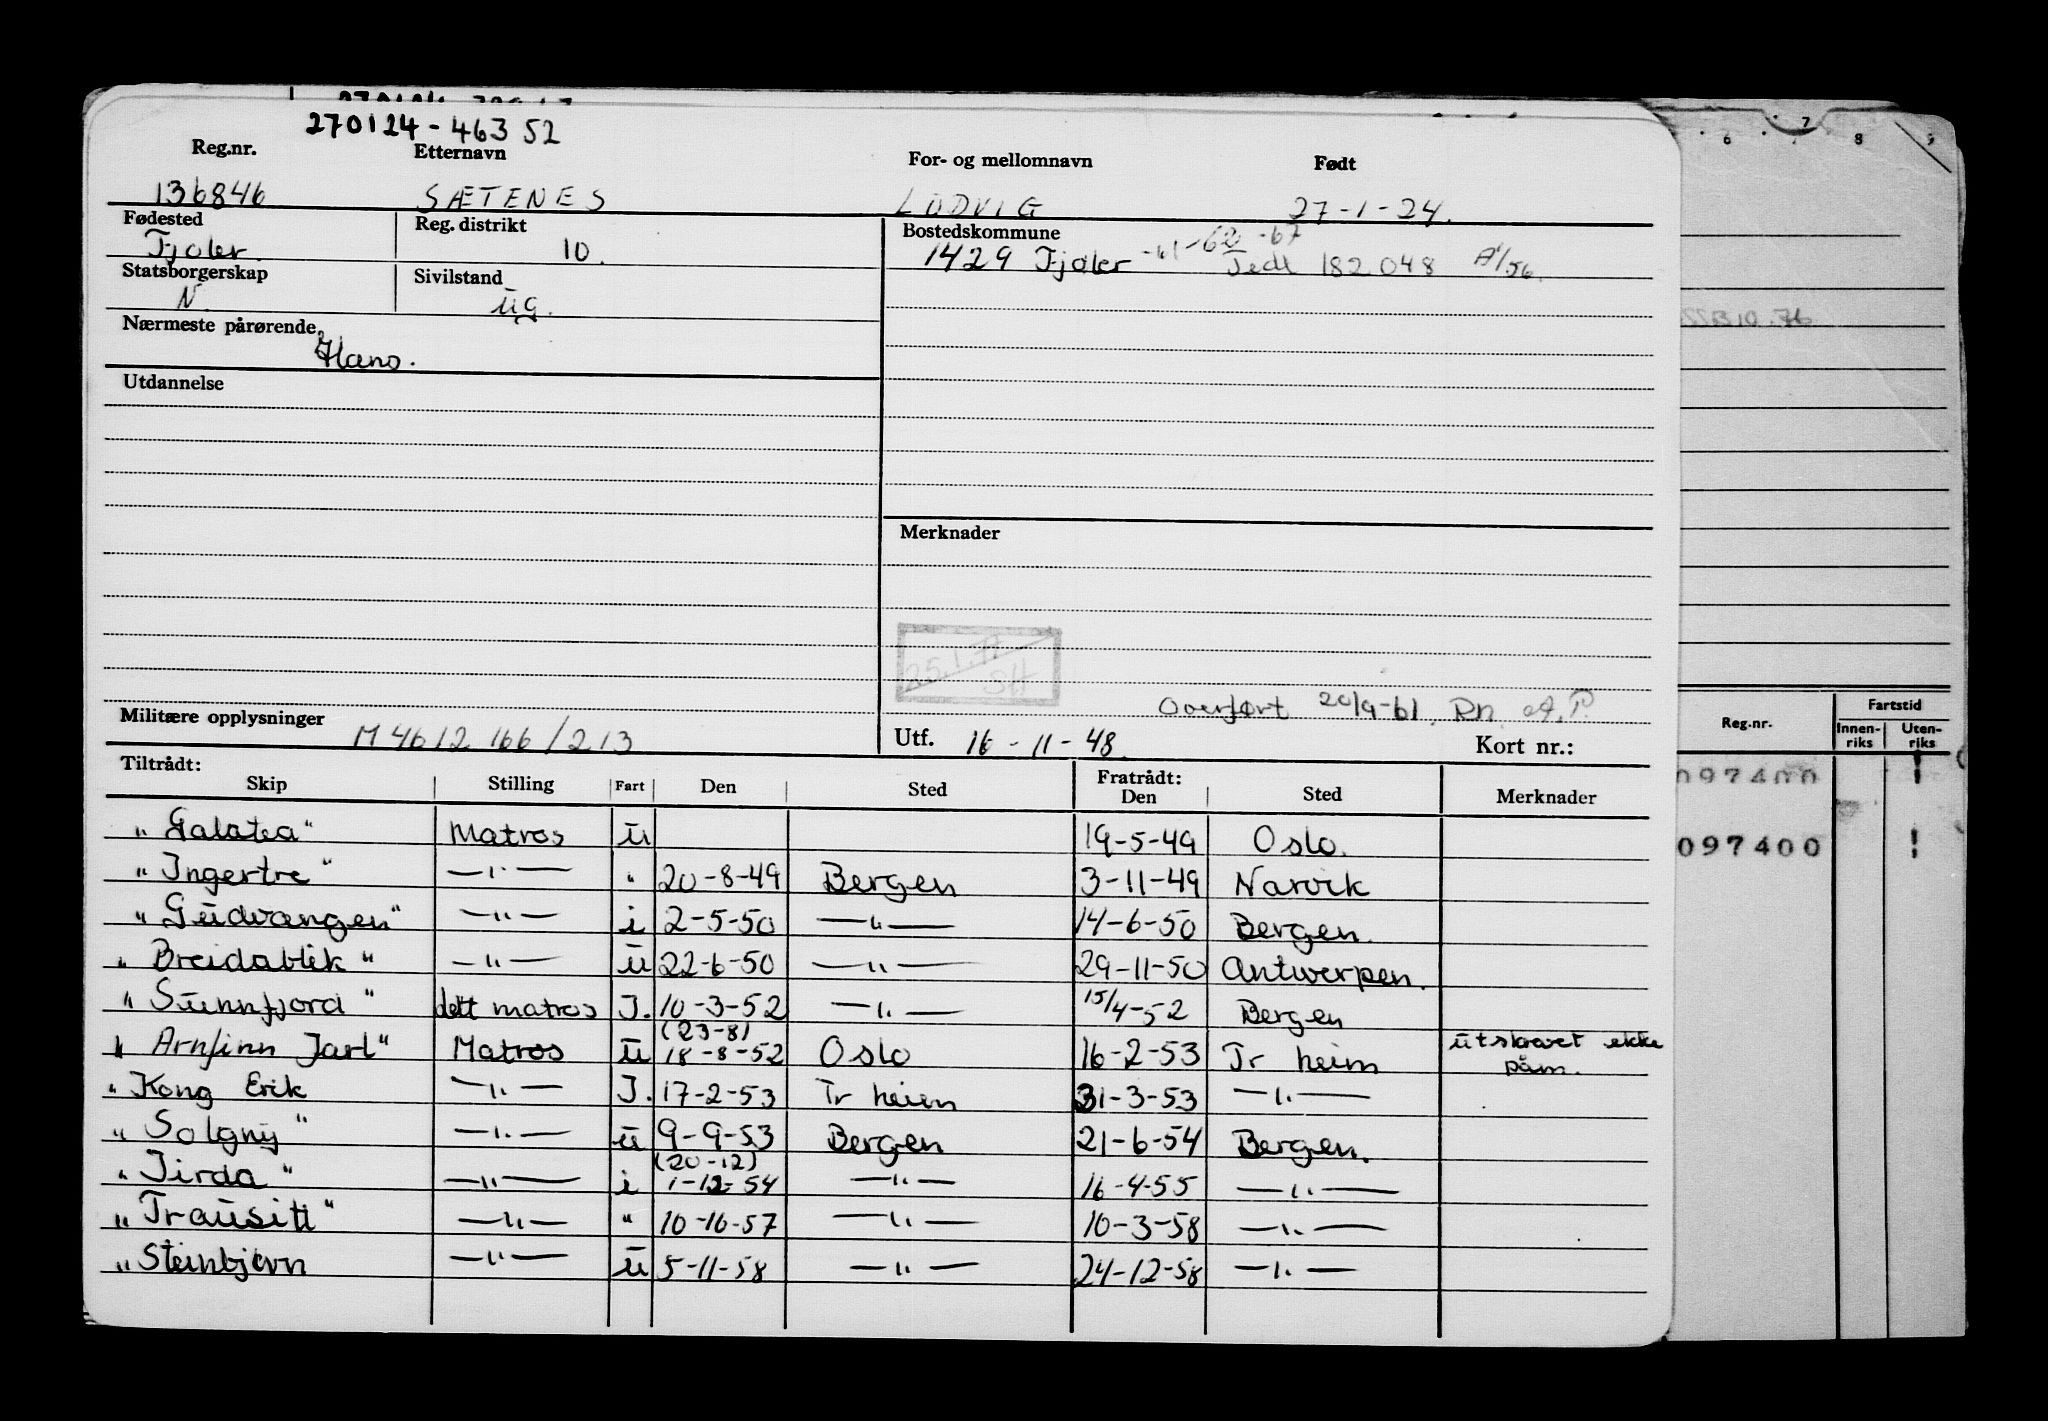 270124-46352
Reg.nr. Etternavn For- og mellomnavn Født
136846 SÆTENES LUDVIG 27-1-24.
Fødested Reg. distrikt Bostedskommune
Fjaler. 10. 1429 Fjaler -61-62-67 182048
Statsborgerskap Sivilstand
N. ug.
Nærmeste pårørende
Hans.
Utdannelse
Merknader
25.1.77
Overført 20/9-61.
Militære opplysninger Utf. 16-11-48. Kort nr.:
M 4612 166/213
Tiltrådt: Fratrådt:
Skip Stilling Fart Den Sted Den Sted Merknader
"Galatea" Matros u 19-5-49 Oslo.
"Ingertre" —"— " 20-8-49 Bergen 3-11-49 Narvik
"Gudvangen" —"— i 2-5-50 —"— 14-6-50 Bergen.
"Breidablik" —"— u 22-6-50 —"— 29-11-50 Antwerpen.
"Sunnfjord" lett matros I. 10-3-52 —"— 15/4-52 Bergen
"Arnfinn Jarl" Matros u (23-8) 18-8-52 Oslo 16-2-53 Tr heim utskrevet ikke påm.
"Kong Erik —"— I. 17-2-53 Tr heim 31-3-53 —"—
"Solgny" —"— u 9-9-53 Bergen 21-6-54 Bergen.
"Firda" —"— i (20-12) 1-12-54 —"— 16-4-55 —"—
"Transitt" —"— " 10-10-57 —"— 10-3-58 —"—
"Steinbjørn —"— u 5-11-58 —"— 24-12-58 —"—
6 7 8 9
Reg.nr. Fartstid
Innen-riks Uten-riks
097400 !
097400 !